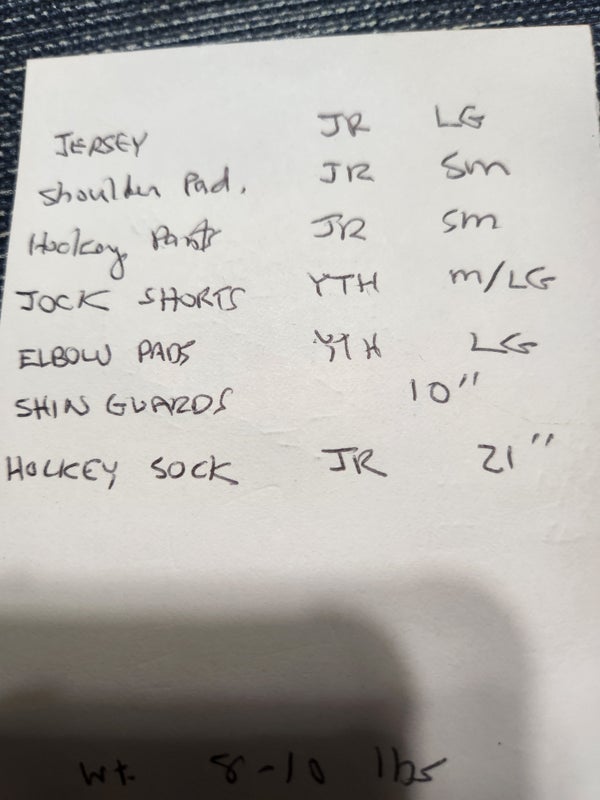 JERSEY JR LG
Shoulder Pad. JR Sm
Hockey Pants JR Sm
JOCK SHORTS YTH m/LG
ELBOW PADS YTH LG
SHIN GUARDS 10"
HOCKEY SOCK JR 21"
Wt. 8-10 lbs